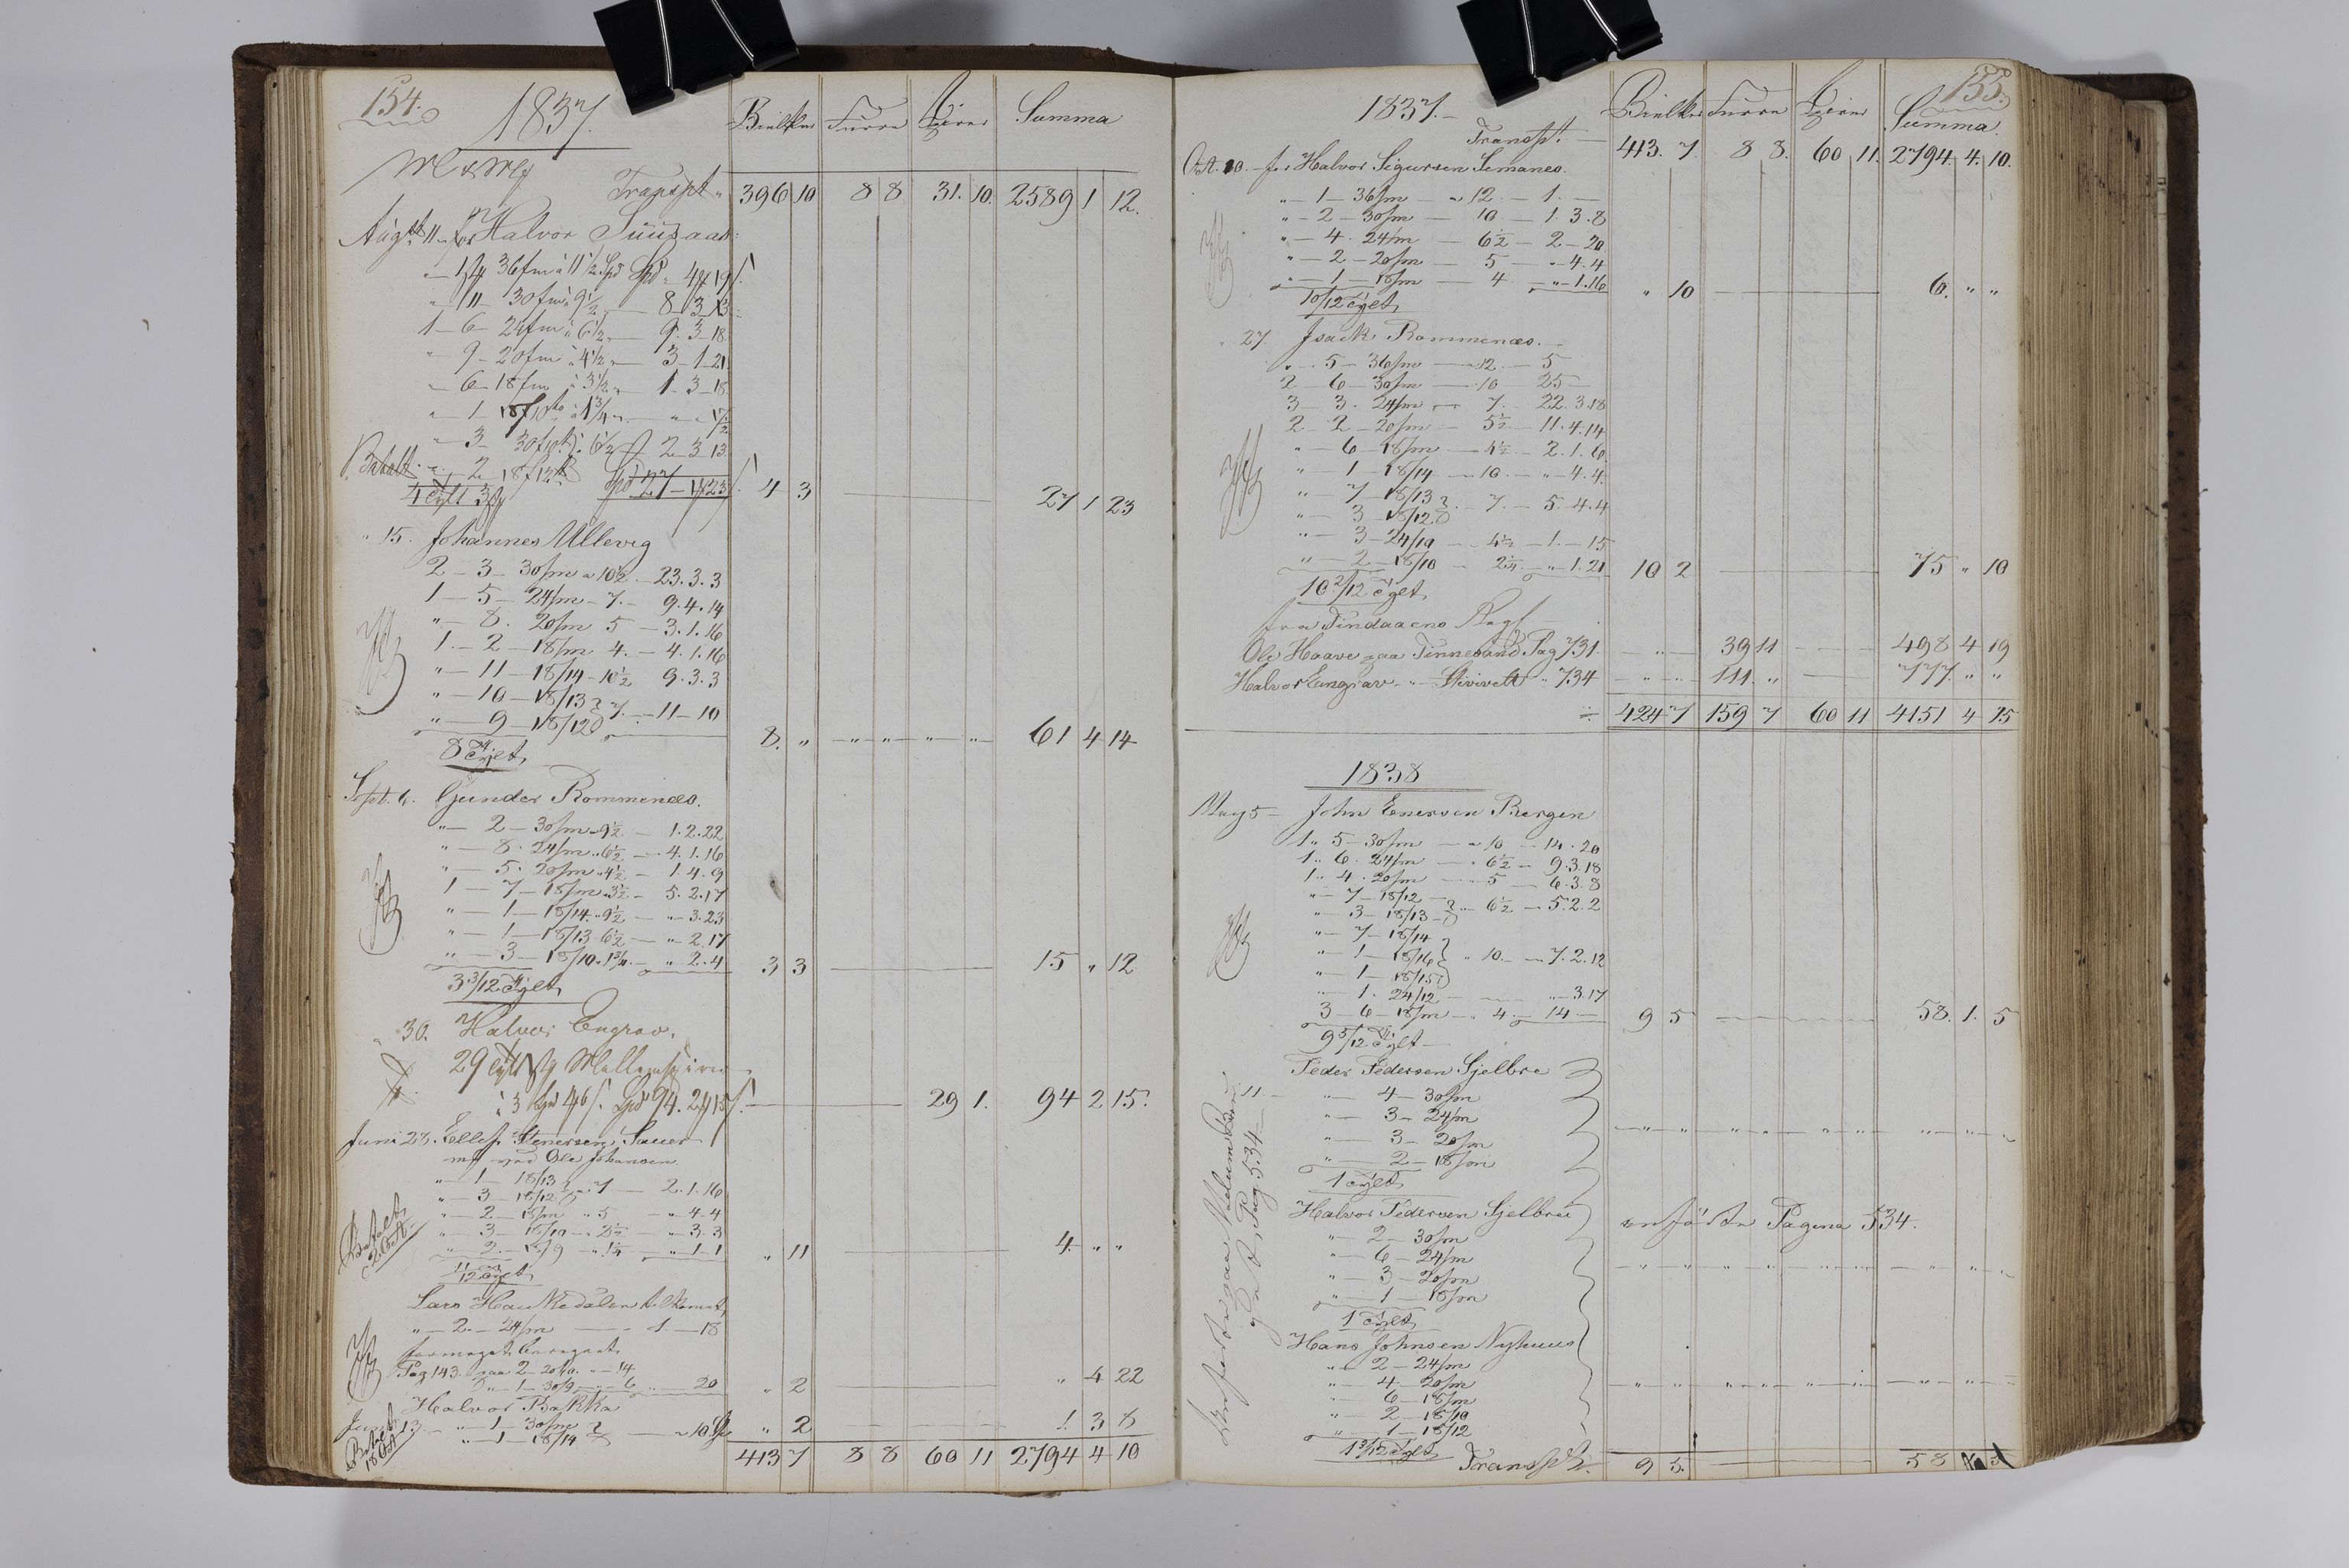 154.
1837.
Bielker Furre Spirer Summa
Transpt „ 396 10 8 8 31. 10. 2589 1 12.
August 11 for Halvor
1 36fm à 11½ Spd Spd 4 19
„ 11 30fm à 9½ 8 3 13
1 – 6 – 24fm à 6½ – 9. 3 – 18.
„ 9 – 20fm à 4½ – 3 – 1 – 21
„ 6 – 18fm à 3½ – 1 – 3 – 18.
„ – 3 30 6½ 2 – 3 – 13.
Betalt „ 2 – 18f12
4 3 27 1 23
„ 15. Johannes Ullevig
2 – 3 – 30fm „ 10½ – 23. 3. 3
1 – 5 – 24fm – 7. – 9. 4. 14
„ – 8. 20fm 5 – 3. 1. 16
1. – 2 – 18fm 4. – 4. 1. 16
„ – 11 – 18/14 – 10½ 9. 3. 3
„ – 10 – 18/13
„ – 9 – 18/12 7. – 11 – 10
8. „ – „ „ „ „ 61 4 14
8 Tylt
Sept. 6. Gunder Rommenæs.
„ – 2 – 30fm „ 9½ – 1. 2. 22
„ – 8. 24fm „ 6½ – 4. 1. 16
„ – 5. 20fm „ 4½ – 1. 4. 9
1 – 7 – 18fm „ 3½ – 5. 2. 17
„ – 1 – 18/14 „ 9½ – „ 3. 23
„ – 1 – 18/13 – 6½ – „ 2. 17
„ – 3 – 18/10 „ 1¾ – „ 2. 4 3 3 15 „ 12
3 3/12 Tylt
„ 30. Halvor Engrav.
29
à 3 Spd 46 Spd 94. 2 15 29 1. 94 2 15.
Juni 27. Ellef Stenersen Sauer
ved Ole Johansen
„ – 1 – 18/13
„ – 3 – 18/12 „ 7 – 2. 1. 16
„ – 2 – 18fm „ 5 – „ 4 – 4
„ – 3 – 18/10 – 2½ – „ 3. 3
„ 2. – 18/9 – „ 1¼ – „ 1 – 1 „ 11 4. „ „
Betalt
11/12 Tylt
Lars Haukedalen tilkomt
„ – 2. – 24fm – 1. – 18
Pag 143. paa 2 – „ – 14
„ 1 – 6 „ 20 „ 2 „ 4 22
Halvor Bakka
Juni 13. „ – 1 – 30fm
„ – 1 – 18/14 „ 10 „ 2 1. 3 8
Betalt
413 7 8 8 60 11 2794 4 10
155.
1837. –
Bielker Furre Spirer Summa.
Transpt. – 413. 7. 8 8. 60 11. 2794. 4. 10.
Oct. 10. – for Halvor Sigursen Semanes.
„ – 1 – 36fm – „ 12. – 1. –
„ – 2 – 30fm – 10. – 1. 3. 8
„ – 4. 24fm – 6½ – 2 – 20
„ – 2 – 20fm – 5 – „ 4. 4
„ – 1 – 18fm – 4. – „ 1. 16 „ 10 6. „ „
10/12 Tylt
„ 27. Isack Rommenæs. –
„ – 5 – 36fm – „ 12. – 5
2 – 6 – 30fm – 10 25 –
3 – 3. 24fm – 7. – 22. 3. 18
2 – 2 – 20fm – 5½ – 11. 4. 14
„ – 6 – 18fm – 4½ – 2. 1. 6.
„ – 1 – 18/14 – 10. – „ 4. 4.
„ – 7 – 18/13
„ – 3 – 18/12 – 7. – 5. 4. 4
„ – 3 – 24/10 – 4½ – 1. – 15
„ – 2 – 18/10 – 2½ – „ 1. 21 10 2 75 „ 10
10 2/12 Tylt
fra Tindaaens
Ole Haave paa Tinnesand Pag 731. – „ – 39 11 – 498 4 19
Halvor Engrav „ – „ 734 – „ – 111. „ 777. „ „
424 7 159 7 60 11 4151 4 15
1838
May 5 – John Enersen Bergen
1 „ 5 – 30fm – „ 10 – 14. 20
1 „ 6. 24fm – „ 6½ – 9. 3. 18
1 „ 4. 20fm – „ 5 – 6. 3. 8
„ – 7 – 18/12
„ – 3 – 18/13 „ 6½ – 5. 2. 2
„ – 7 – 18/14
„ – 1 – 18/16 „ 10. – 7. 2. 12
„ – 1 – 18/15
„ – 1. 24/12 – „ 3. 17
3 – 6 – 18fm – „ 4. – 14 – 9 5 58. 1. 5
9 5/12 Tylt
„ 11. – Peder Pedersen Gjelbre
„ – 4 – 30fm
„ – 3 – 24fm
„ – 3 – 20fm
„ – 2 – 18fm
1 Tylt
Halvor Pedersen Gjelbre
anførte Pagina 534.
„ 2 – 30fm
„ – 6 – 24fm
„ – 3 – 20fm
„ – 1 – 18fm
1 Tylt
Hans Johnsen Nyhuus
„ – 2 – 24fm
„ – 4. – 20fm
„ – 6 – 18fm
„ – 2 – 18/10
„ – 1 – 18/12
1 3/12 Tylt
Transpt. 9 5. 58 5
Pag. 534